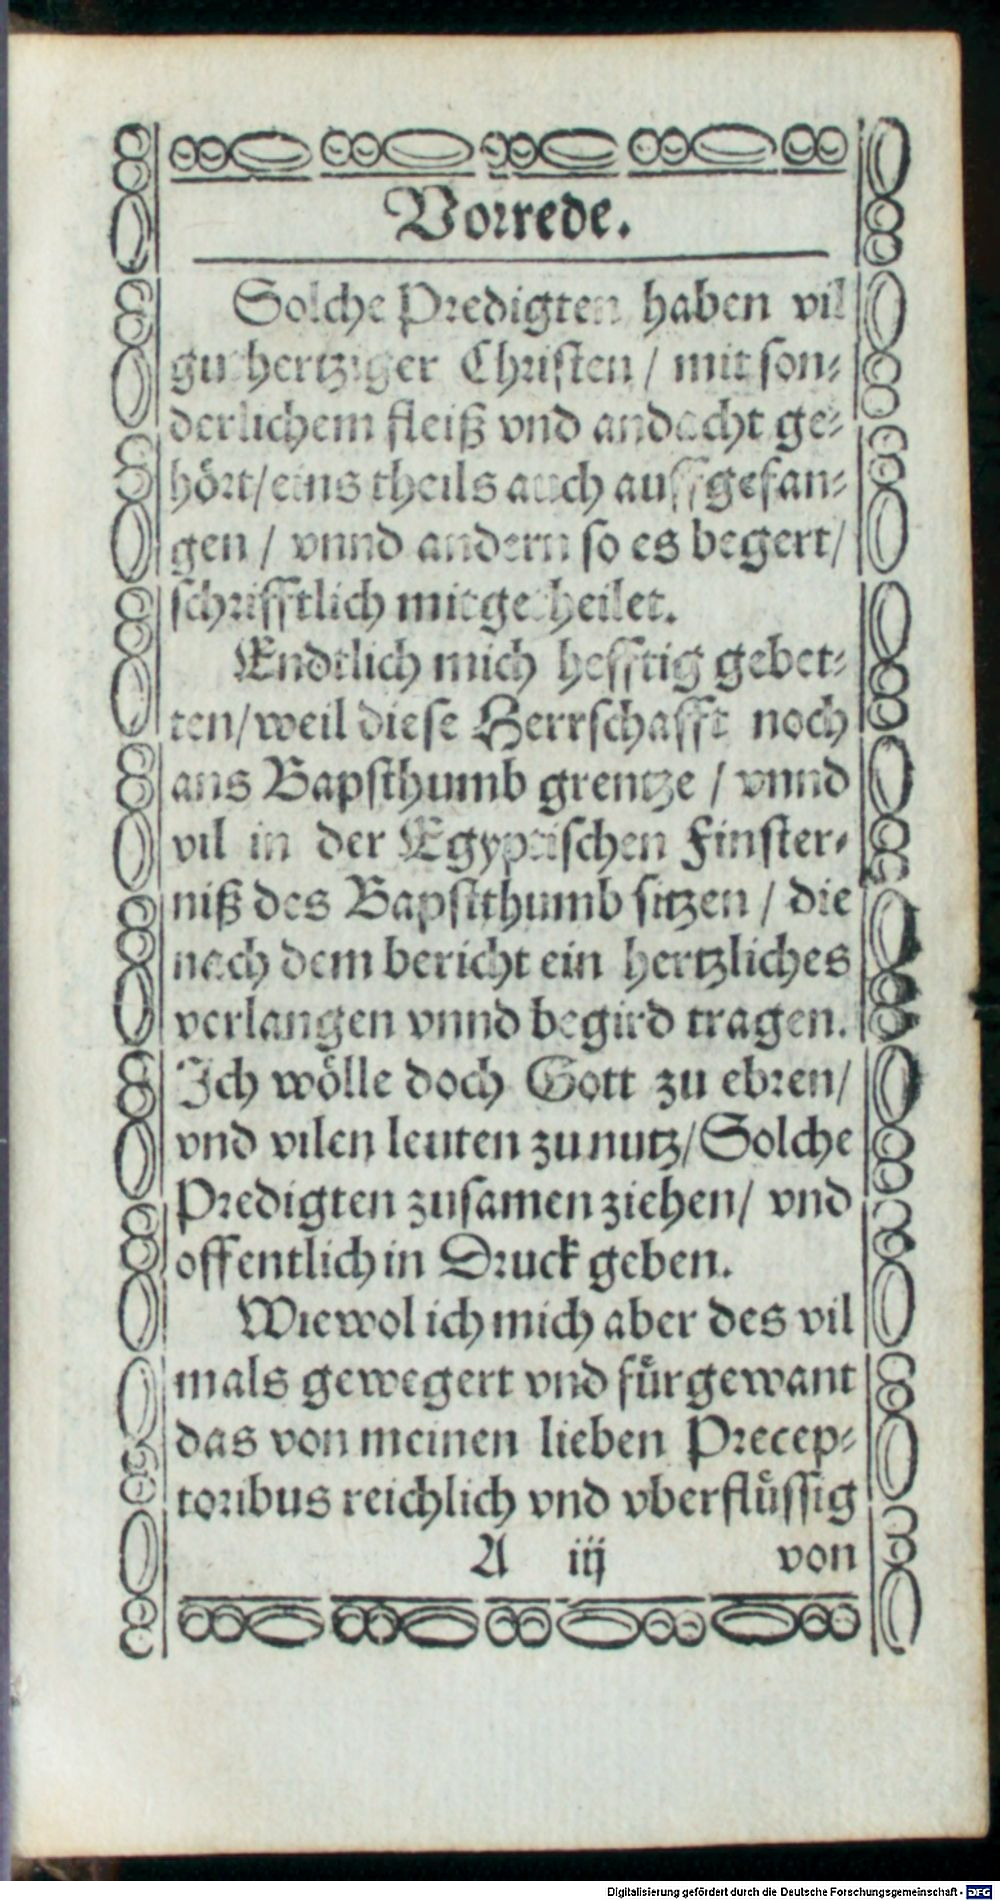 Vorrede.
Solche Predigten haben vil
guthertziger Christen / mit son⸗
derlichem fleiß vnd andacht ge⸗
hört/eins theils auch auffgefan⸗
gen / vnnd andern so es begert/
schrifftlich mitgetheilet.
Endtlich mich hefftig gebet⸗
ten/weil diese Herrschafft noch
ans Bapsthumb grentze / vnnd
vil in der Egyptischen Finster⸗
niß des Bapstthumb sitzen / die
nach dem bericht ein hertzliches
verlangen vnnd begird tragen.
Ich wölle doch Gott zu ehren/
vnd vilen leuten zu nutz/Solche
Predigten zusamen ziehen/ vnd
offentlich in Druck geben.
Wiewol ich mich aber des vil
mals gewegert vnd fürgewant
das von meinen lieben Precep⸗
toribus reichlich vnd vberflüssig
A iij von
Digitalisierung gefördert durch die Deutsche Forschungsgemeinschaft - DFG